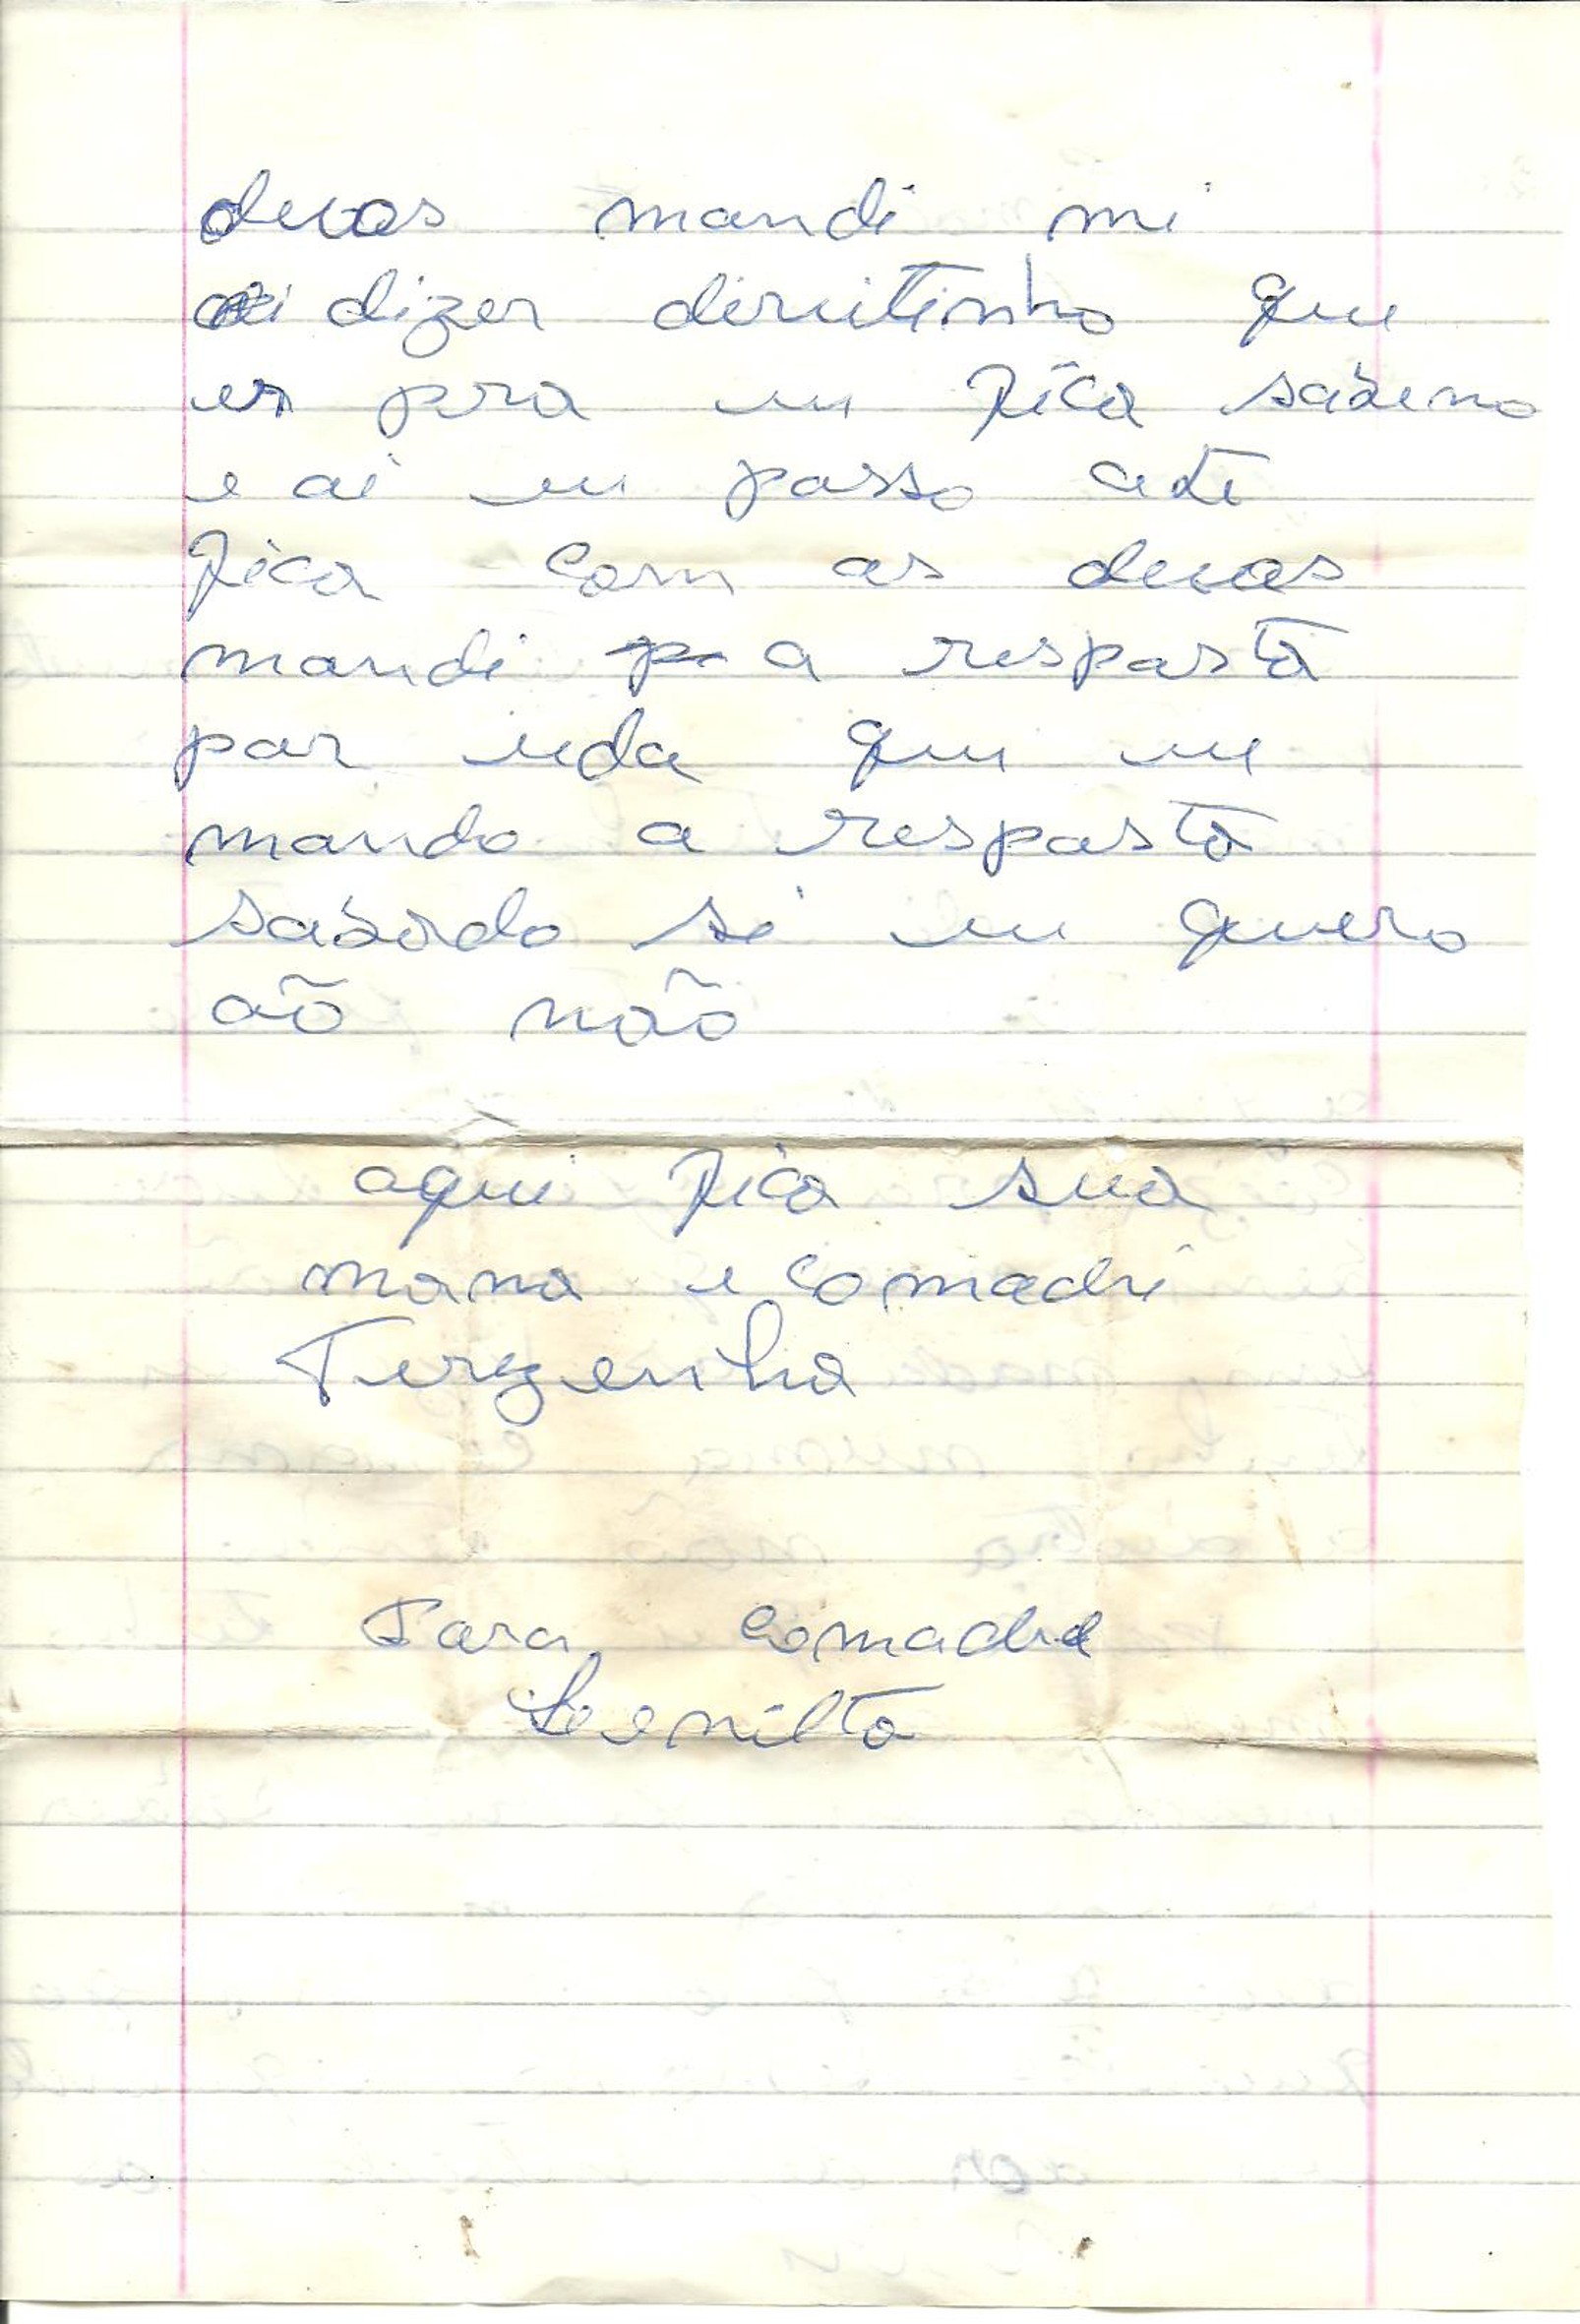 duas mandi mi
dizer direitinho que
es pra eu fica sabeno
e ai eu posso ate
fica com as duas
mandi a resposta
por ieda que eu
mando a resposta
sabado si eu quero
aõ não
aqui fica sua
mana e comadri
Terezenha
Para comadre
Loenilta